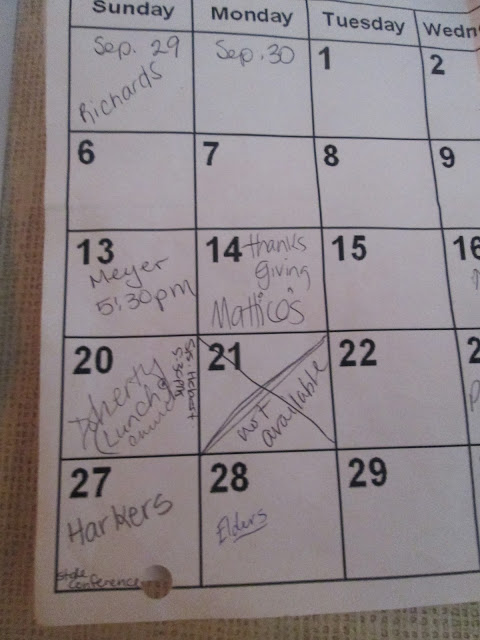 Sunday Monday Tuesday Wedn
Sep. 29 Sep. 30 1 2
Richards
6 7 8 9
13 14 thanks 15 16
Meyer giving
5:30pm Matticos
20 21 22 2
Doherty
(Lunch)
5:30pm
not
available
27 28 29
Harkers Elders
conference